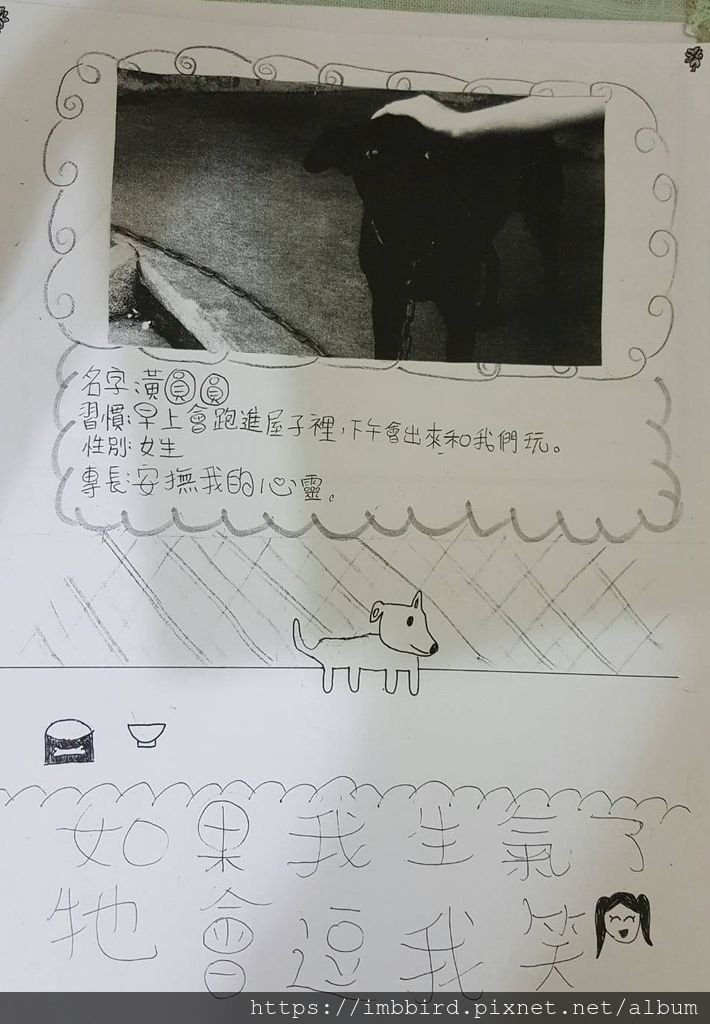 名字:潢圓圓
習慣:早上會跑進屋子裡,下午會出來和我們玩。
性別:女生
專長:安撫我的心靈。
如果我生氣了
牠會逗我笑
https://imbbird.pixnet.net/album